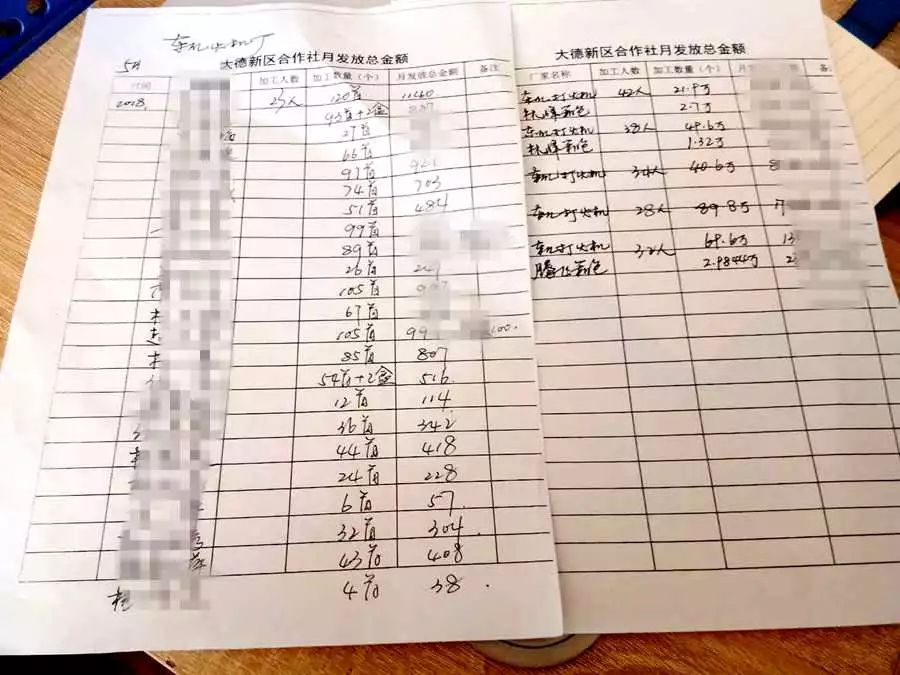 5月
大德新区合作社月发放总金额
加工人数 加工数量(个) 月发放总金额 备注
2018 23人 120箱 1140
93箱+2盒 887
27箱
66箱
97箱 921
74箱 703
51箱 484
99箱
89箱
26箱 247
105箱 997
67箱
105箱 99 100.
85箱 807
54箱+2盒 516
12箱 114
36箱 342
44箱 418
24箱 228
6箱 57
32箱 304
43箱 408
4箱 38
大德新区合作社月发放总金额
厂家名称 加工人数 加工数量(个) 月 备
东礼打火机 42人 21.9万
林峰彩色 2.7万
东礼打火机 38人 49.6万
林峰彩色 1.32万
东礼打火机 34人 40.6万 8
东礼打火机 28人 89.8万 7
东礼打火机 32人 69.6万 13
腾飞彩色 2.9844万 2